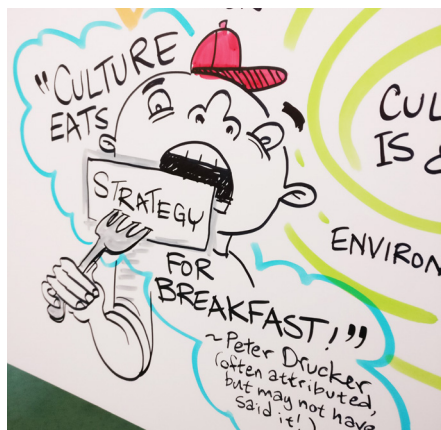 "CULTURE
EATS
STRATEGY
FOR
BREAKFAST!"
~Peter Drucker
(often attributed,
but may not have
said it!)
IS